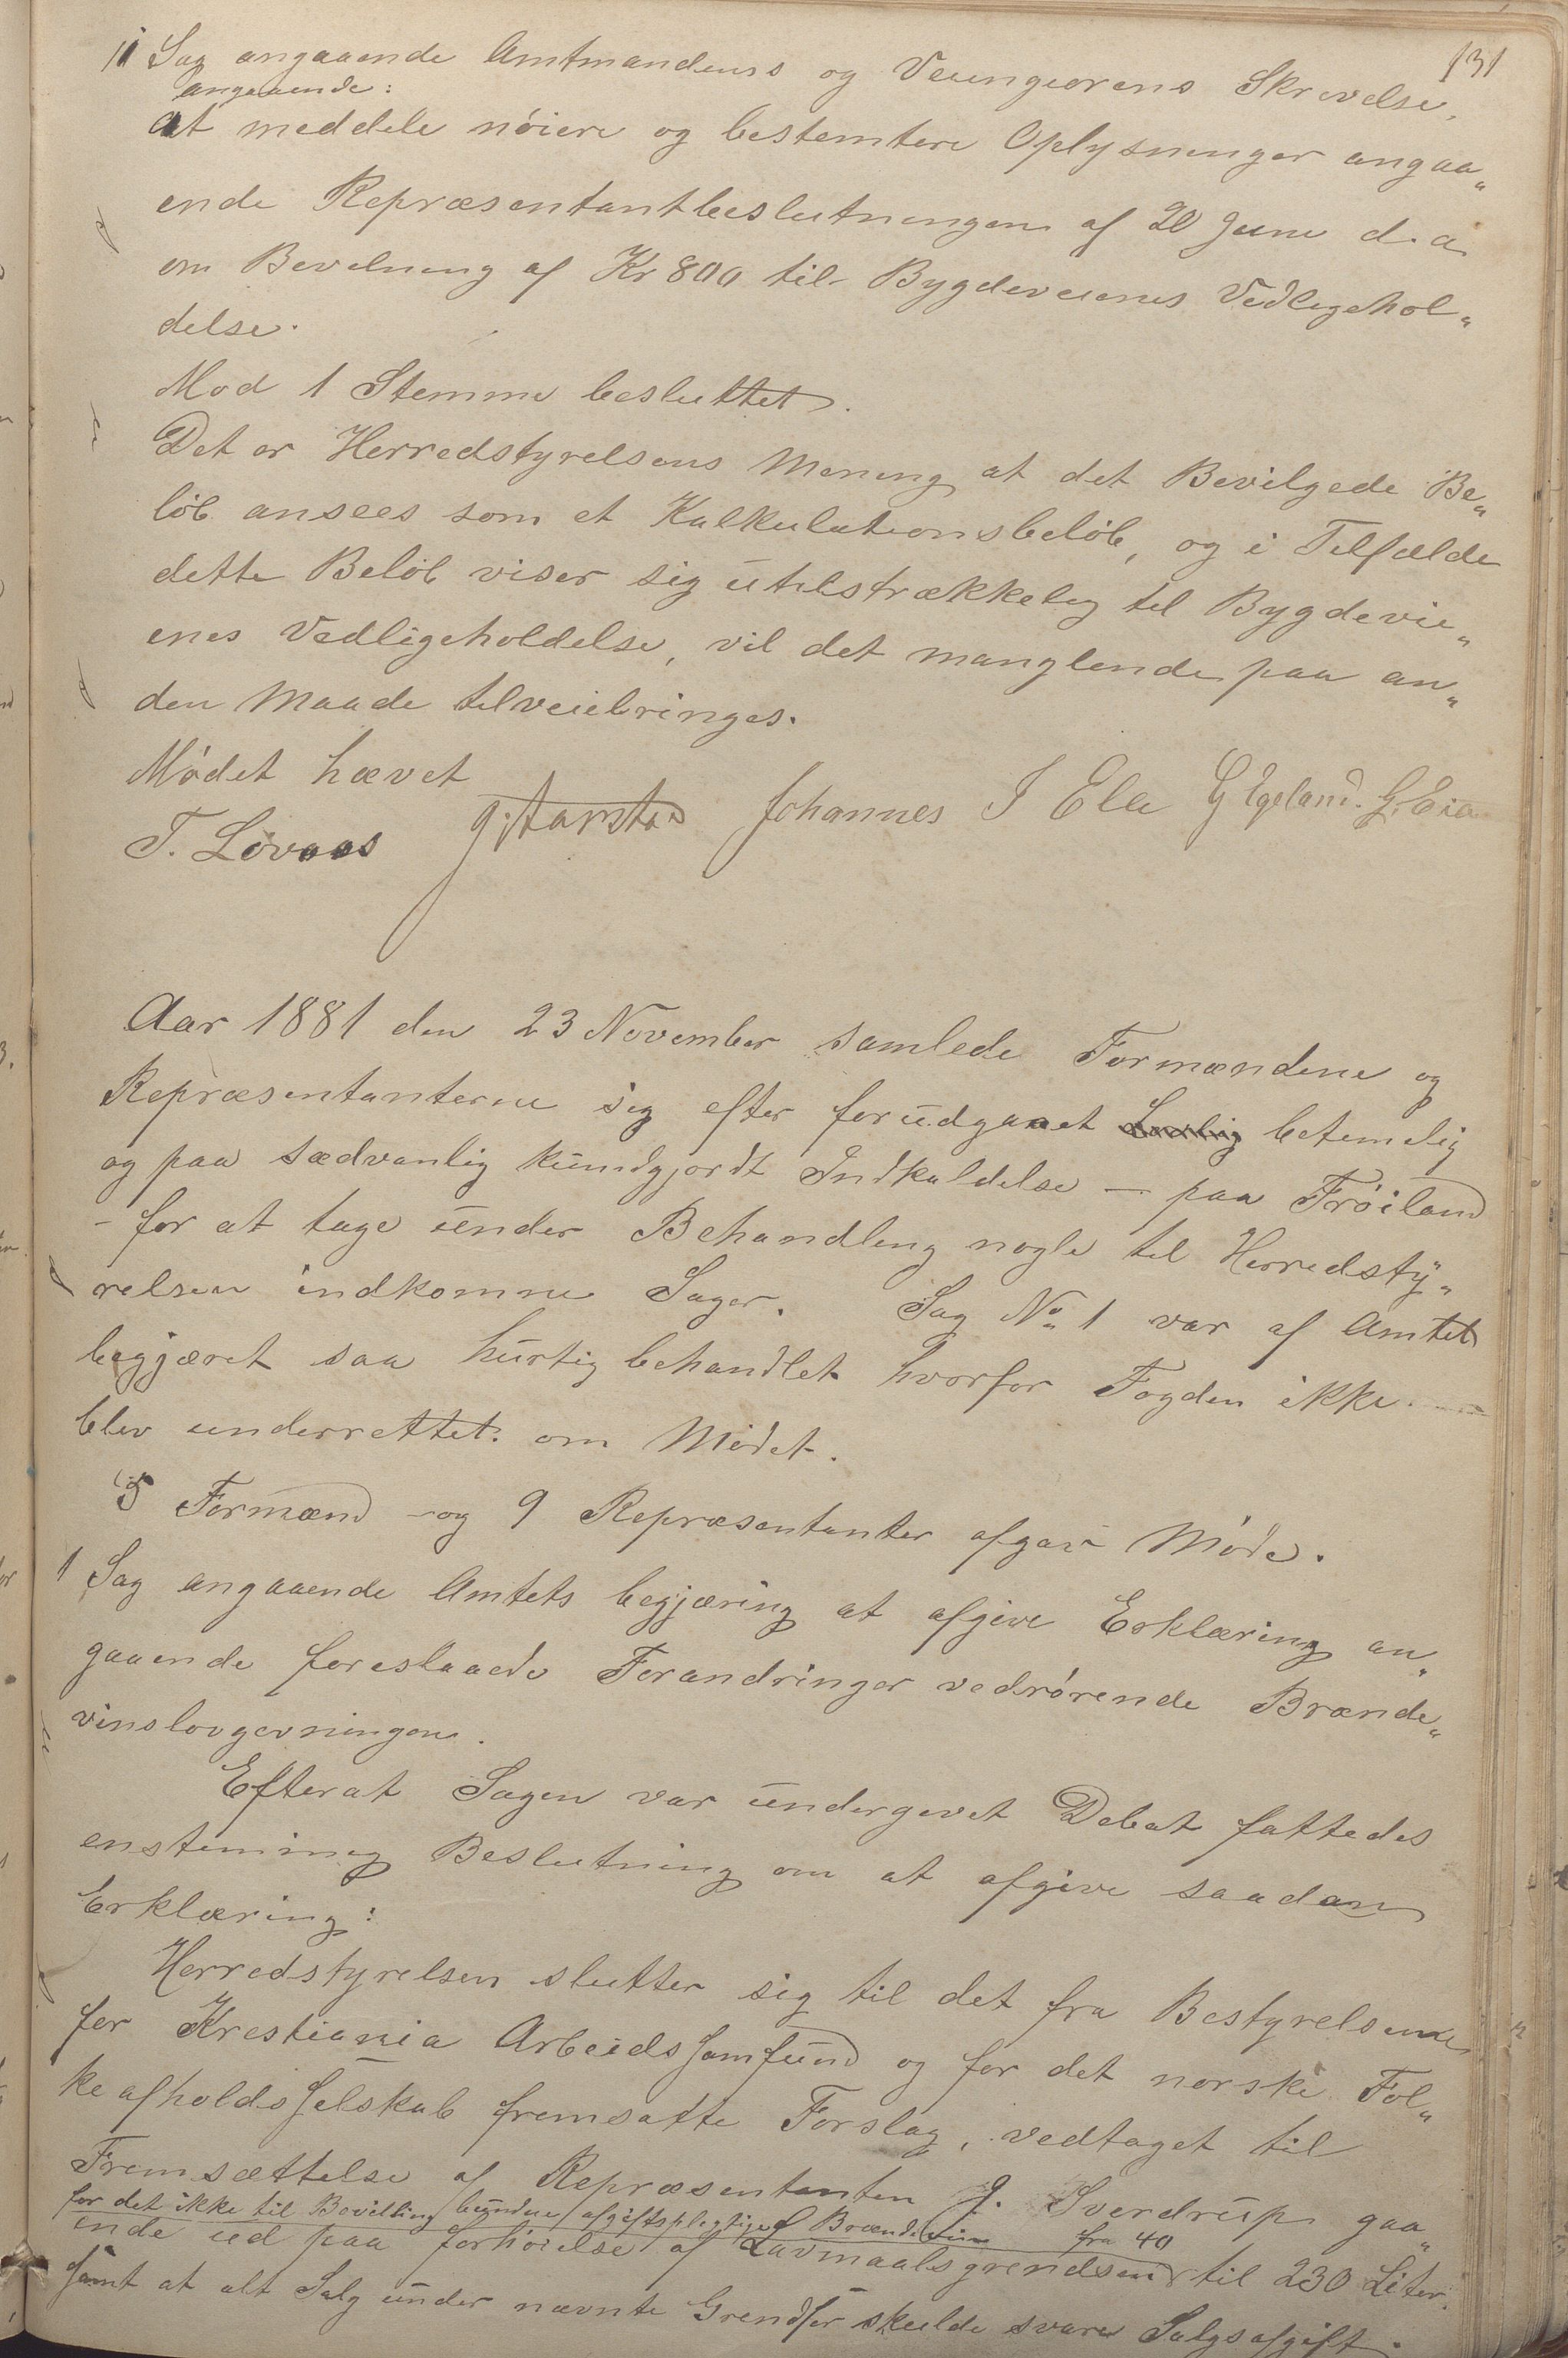 131
11 Sag angaaende Amtmandens og Veiingeørens Skrivelse,
angaaende:
at meddele nöiere og bestemtere Oplysninger angaa„
ende Repræsentantbeslutningen af 20 Juni d.a.
om Bevilning af Kr 800 til Bygdeveienes Vedligehol„
delse.
Mod 1 Stemme besluttet.
Det er Herredstyrelsens Mening at det Bevilgede Be„
löb ansees som et Kalkulationsbelöb, og i Tilfælde
dette Belöb viser sig utilstrækkelig til Bygdevei„
enes Vedligeholdelse, vil det manglende paa an„
den Maade tilveiebringes.
Mödet hævet
T. Lövaas G. Aarstad Johannes I Else G Egeland. G. Eia
Aar 1881 den 23 November samlede Formændene og
Repræsentanterne sig efter forudgaaet betimelig
og paa sædvanlig kundgjordt Indkaldelse — paa Fröiland
– for at tage under Behandling nogle til Herredsty„
relsen indkomne Sager. Sag No 1 var af Amtet
begjæret saa hurtig behandlet hvorfor Fogden ikke
blev underrettet om Mödet.
5 Formænd og 9 Repræsentanter afgav Möde.
1 Sag angaaende Amtets begjæring at afgive Erklæring an„
gaaende foreslaaede Forandringer vedrörende Brænde„
vinslovgevningen.
Efterat Sagen var undergivet Debat fattedes
enstemmig Beslutning om at afgive saadan
Erklæring:
Herredstyrelsen slutter sig til det fra Bestyrelserne
for Kristiania Arbeidssamfund og for det norske Fol„
keafholdsselskab fremsatte Forslag, vedtaget til
Fremsættelse af Repræsentanten J. Sverdrup gaa„
for det ikke til Bevilling bundne afgiftspligtige Brændeviin fra 40
ende ud paa forhöielse af Lavmaalsgrendsen til 230 Liter.
samt at alt Salg under nævnte Grendser skulde svare Salgsafgift.